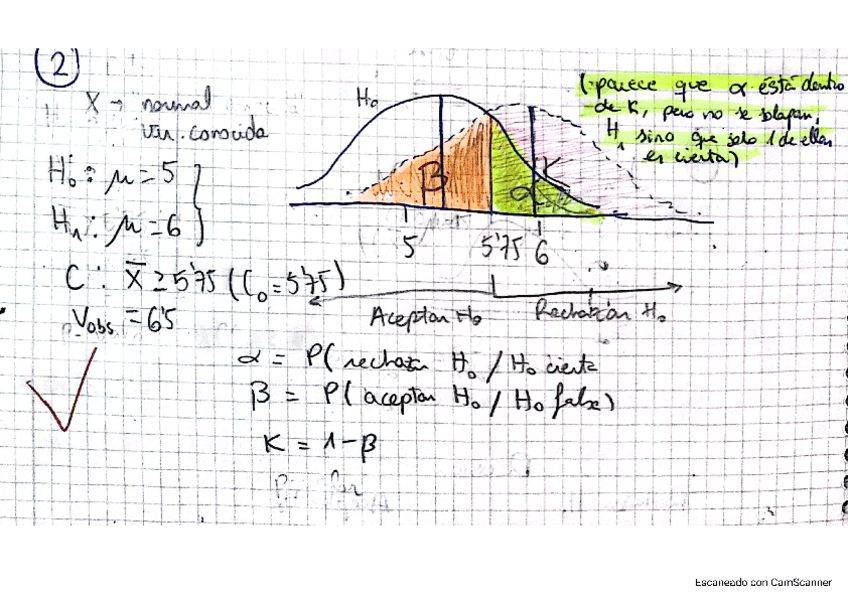 2
X → normal
var. conocida
H₀: μ = 5
H₁: μ = 6
C: X̄ ≥ 5'75 (C₀ = 5'75)
Vobs = 6'5
H₀
(parece que α está dentro
de K, pero no se solapan,
H₁ sino que solo 1 de ellas
es cierta)
β
α
K
5
5'75
6
Aceptan H₀
Rechazan H₀
α = P( rechazar H₀ / H₀ cierta
β = P( aceptar H₀ / H₀ falsa)
K = 1 - β
Escaneado con CamScanner